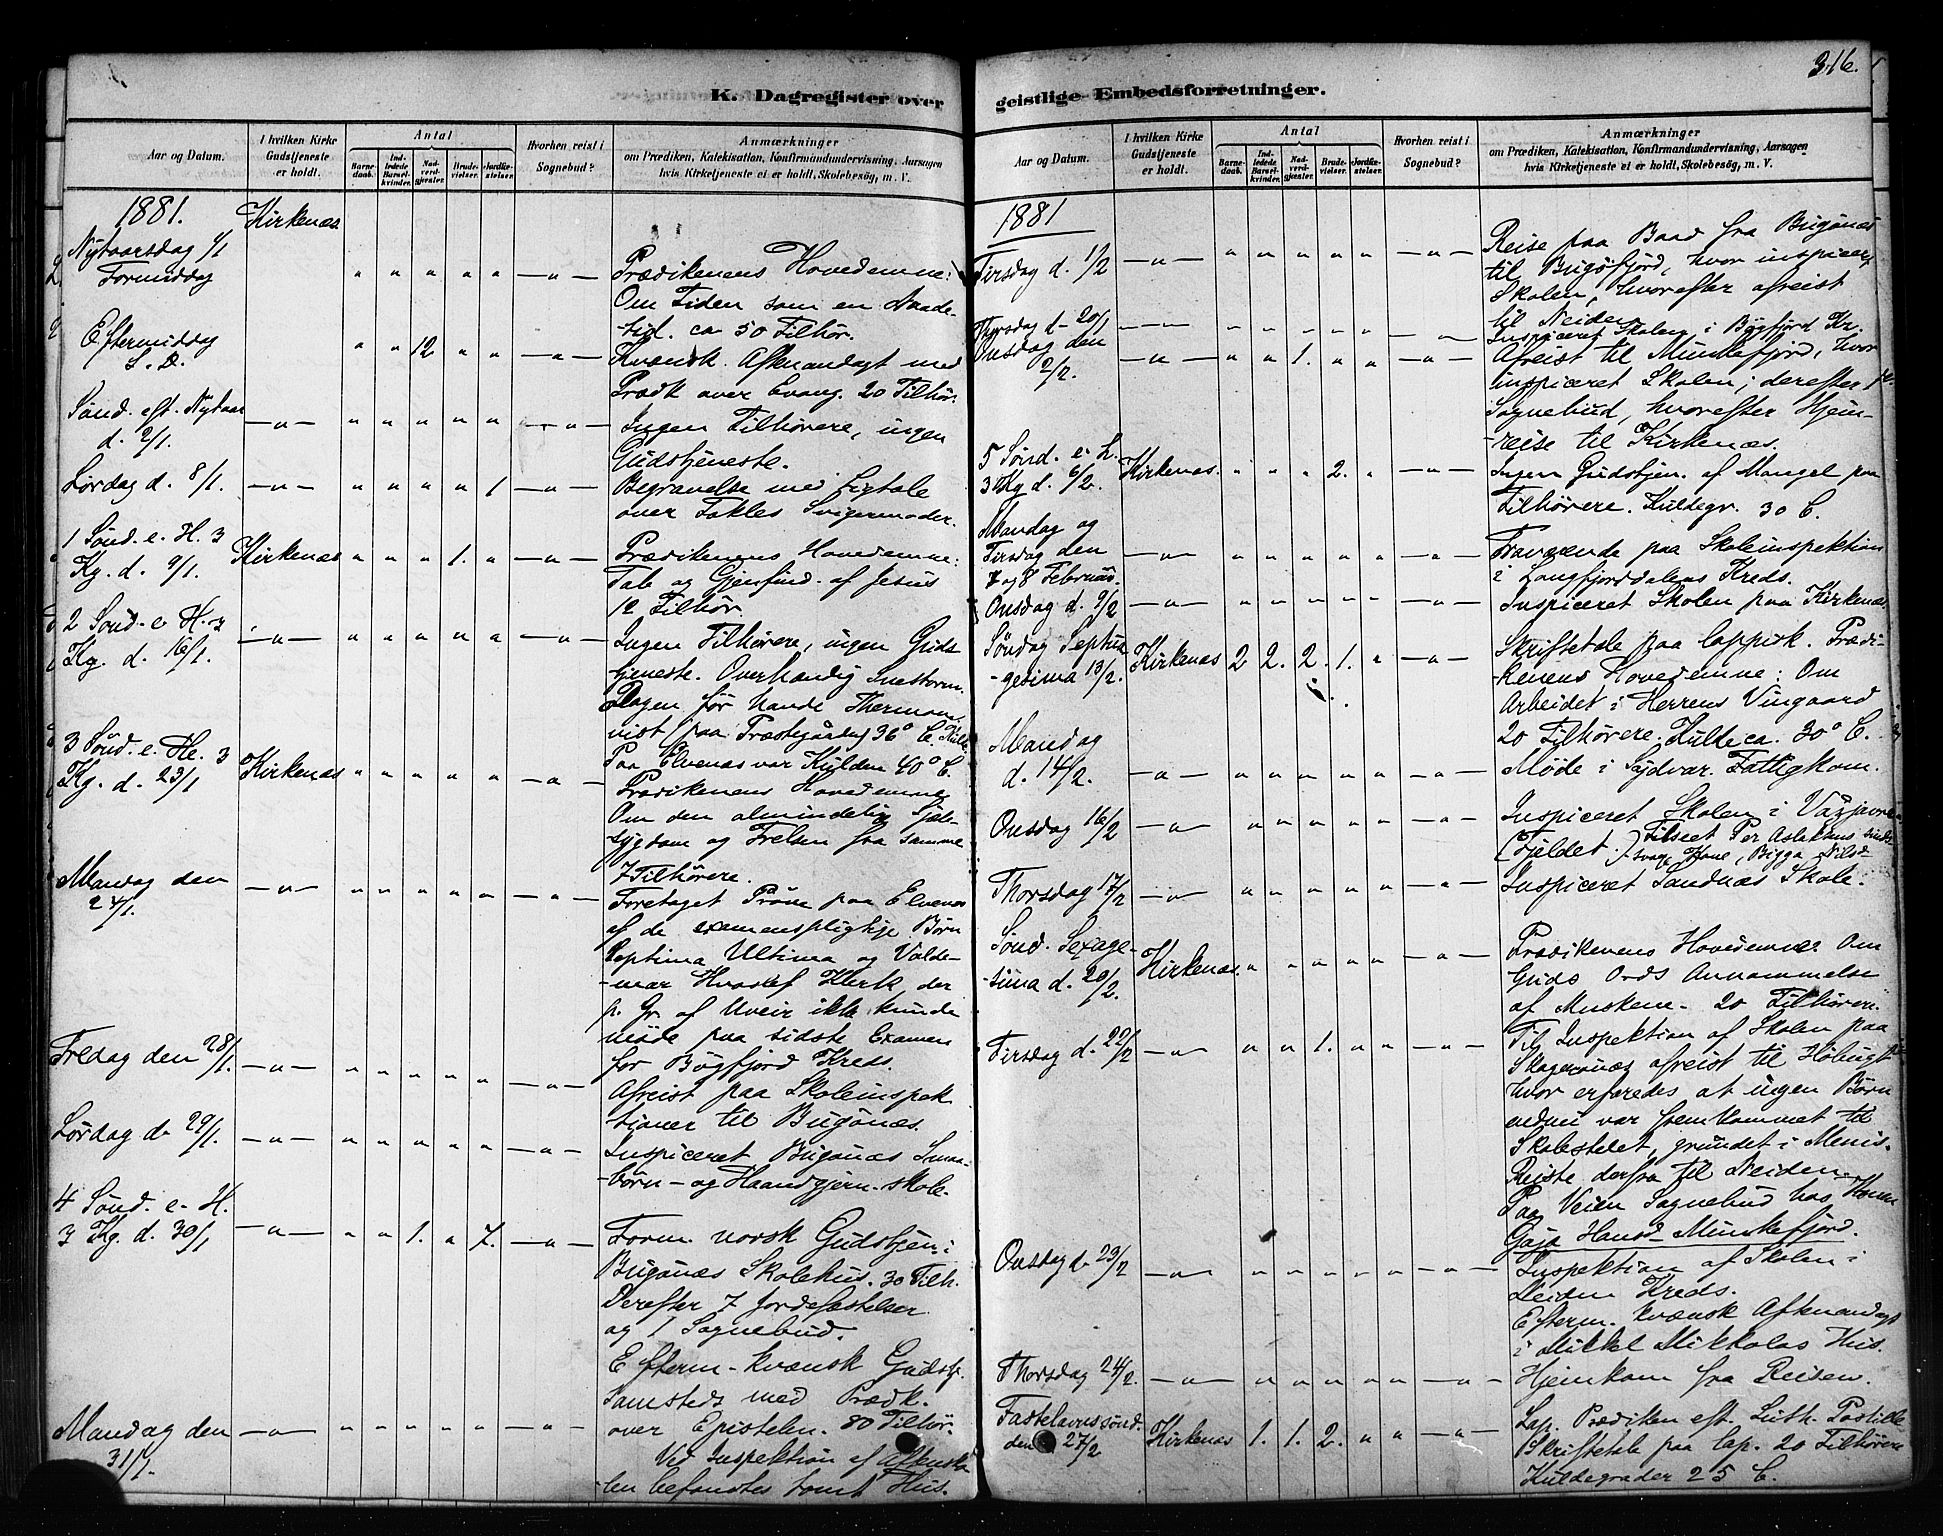 316.
K. Dagregister over
geistlige Embedsforretninger.
Aar og Datum.
I hvilken Kirke Gudstjeneste er holdt.
Antal
Barnedaab.
Indledede Barselkvinder.
Nadverdgjester.
Brudevielser.
Jordfæstelser.
Hvorhen reist i Sognebud?
Anmærkninger
om Prædiken, Katekisation, Konfirmandundervisning, Aarsagen
hvis Kirketjeneste ei er holdt, Skolebesøg, m. V.
1881. Kirkenæs
Nytaarsdag 1/1
Formiddag " " " " " —"— Prædikenens Hovedemne:
Om Tiden som en Naade-
-tid. ca 50 Tilhør.
Eftermiddag " " 12. " " —"— Kvænsk Aftenandagt med
S. D.
Prædk over Evang. 20 Tilhør.
Sønd. eft. Nytaar —"— " " " " " —"— Ingen Tilhørere, ingen
d. 2/1.
Gudstjeneste.
Lørdag d. 8/1. —"— " " " " 1 —"— Begravelse med Ligtale
over Svigermoder.
1 Sønd. e. H. 3
Kg. d. 9/1. Kirkenæs " " " 1. " —"— Prædikenens Hovedemne:
Tab og Gjenfind. af Jesus
12 Tilhør.
2 Sønd. e. H. 3
Kg. d. 16/1. —"— " " " " " —"— Ingen Tilhørere, ingen Guds-
tjeneste. Overhændig Snestorm.
Dagen før havde Thermom.
vist paa Præstegaarden 36° C. Kulde
Paa Elvenæs var Kulden 40° C.
3 Sønd. e. He. 3
Kg. d. 23/1 Kirkenæs " " " " " —"— Prædikenens Hovedemne
Om den almindelig Sjæle-
sygdom og Frelsen fra samme
7 Tilhørere.
Mandag den —"— " " " " " —"— Foretaget Prøve paa Elvenæs
24/1.
af de examenspligtige Børn
Septima Ultima og Valde-
-mar Klerk, der
p. Gr. af Uveir ikke kunde
møde paa sidste Examen
for Bøgfjord Kreds.
Fredag den 28/1. —"— " " " " " —"— Afreist paa Skoleinspek
tioner til Bugønæs.
Lørdag d. 29/1. —"— " " " " " —"— Inspiceret Bugønæs Smaa-
-børn- og Haandgjern. skole.
4 Sønd. e. H.
3 Kg. d. 30/1 —"— " " 1. " 7. —"— Form. norsk Gudstjen. i
Bugønæs Skolehus. 30 Tilh.
Derefter 7 Jordefæstelser
og 1 Sognebud.
Efterm. kvænsk Gudstj.
samsteds med Prædk.
Mandag den —"— " " " " " —"— over Epistelen. 80 Tilhør.
31/1.
Ved Inspektion af Aftensko
-len befandtes tomt Hus.
1881
Tirsdag d. 1/2 —"— " " " " " —"— Reise paa Baad fra Bugønæs
til Bugøfjord, hvor inspicer.
Skolen, hvorefter afreist
til Neiden.
Thorsdag d. 20/1 —"— —"— Inspiceret Skolen i Bøgfjord Kr.
Onsdag den
2/2. —"— " " 1. " " —"— Afreist til Munkefjord, hvor
inspiceret Skolen; derefter i
Sognebud, hvorefter Hjem-
-reise til Kirkenæs.
5 Sønd. e. H.
3 Kg d. 6/2. Kirkenæs. " " " 2. " —"— Ingen Gudstjen. af Mangel paa
Tilhørere. Kuldegr. 30 C.
Mandag og
Tirsdag den
7 og 8 Februar. —"— " " " " " —"— Fraværende paa Skoleinspektion
i Langfjorddalens Kreds.
Onsdag d. 9/2 —"— " " " " " —"— Inspiceret Skolen paa Kirkenæs
Søndag Septua
-gesima 13/2. Kirkenæs 2 2. 2. 1. " —"— Skriftetale paa lappisk. Prædi-
kenens Hovedemne: Om
Arbeidet i Herrens Vingaard
20 Tilhørere. Kulde ca. 30° C.
Mandag
d. 14/2. —"— " " " " " —"— Møde i Sydvar. Fattigkom.
Onsdag 16/2 —"— " " " " " —"— Inspiceret Skolen i
(Fjeldet.) Tilseet Per Aslaksens sinds-
svage Kone, Bigga Nilsd.
Thorsdag 17/2 —"— " " " " " —"— Inspiceret Sandnæs Skole.
Sønd. Sexage-
-sima d. 20/2. Kirkenæs. " " " " " —"— Prædikenens Hovedemne Om
Guds Ords Annammelse
af Mskene. 20 Tilhørere.
Tirsdag d. 22/2 —"— " " 1. " " —"— Til Inspektion af Skolen paa
afreist til
hvor erfaredes at ingen Børn
endnu var fremkommet til
Skolestedet, grundet i
Reiste derfra til Neiden.
Paa Veien Sognebud hos Konen
Gaja Hansd. Munkefjord.
Onsdag d. 23/2 —"— " " " " " —"— Inspektion af Skolen i
Neiden Kreds.
Efterm. kvænsk Aftenandagt
i Mikkel Mikkolas Hus.
Thorsdag 24/2. —"— " " " " " —"— Hjemkom fra Reisen.
Fastelavnssønd.
den 27/2 Kirkenæs 1. 1. 2. " " —"— Lap. Prædiken eft. Luth. Postille
Skriftetale paa lap. 20 Tilhørere
Kuldegrader 25 C.